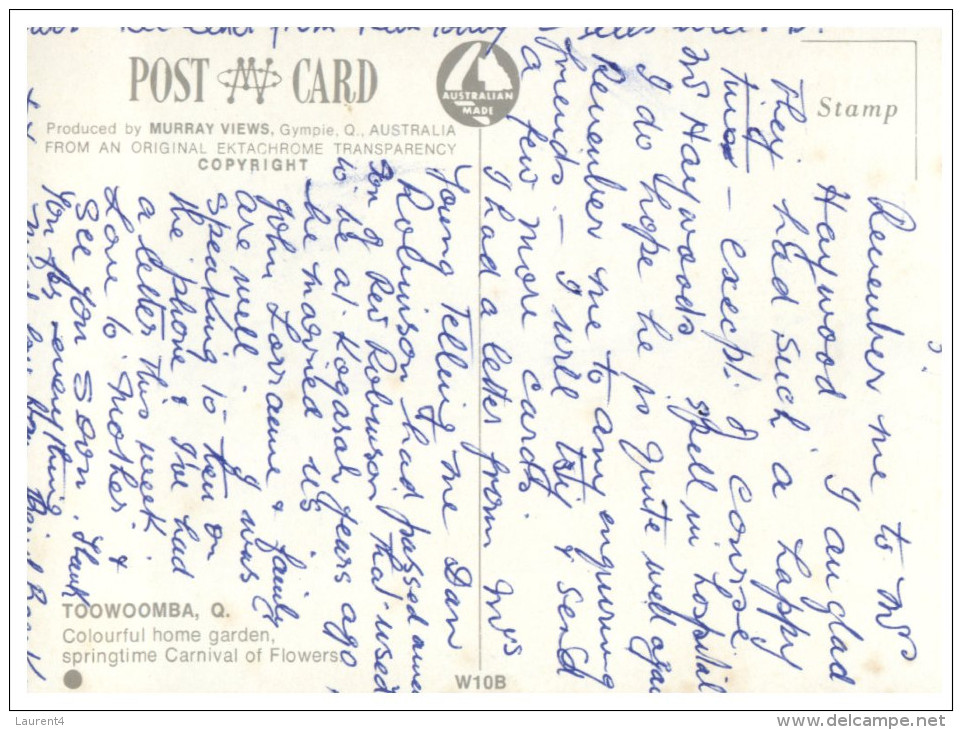 POST CARD
AUSTRALIAN
MADE
Stamp
Produced by MURRAY VIEWS, Gympie, Q., AUSTRALIA
FROM AN ORIGINAL EKTACHROME TRANSPARENCY
COPYRIGHT
Remember me to Mr
Haywood I am glad
they had such a happy
time - except of course
Mr Haywoods spell in hospital
I do hope he is quite well again
Remember me to any enquiring
friends - I will try & send
a few more cards
I had a letter from Mrs
Young telling me Dan
Robinson had passed away
Son of Rev Robinson that used
to be at Kogarah years ago
he married us
John Lorraine & family
are well I was
speaking to them on
the phone & I've had
a letter this week
Love to Mother &
See you soon. Thank
You for everything
TOOWOOMBA, Q.
Colourful home garden,
springtime Carnival of Flowers.
W10B
Laurent4
www.delcampe.net